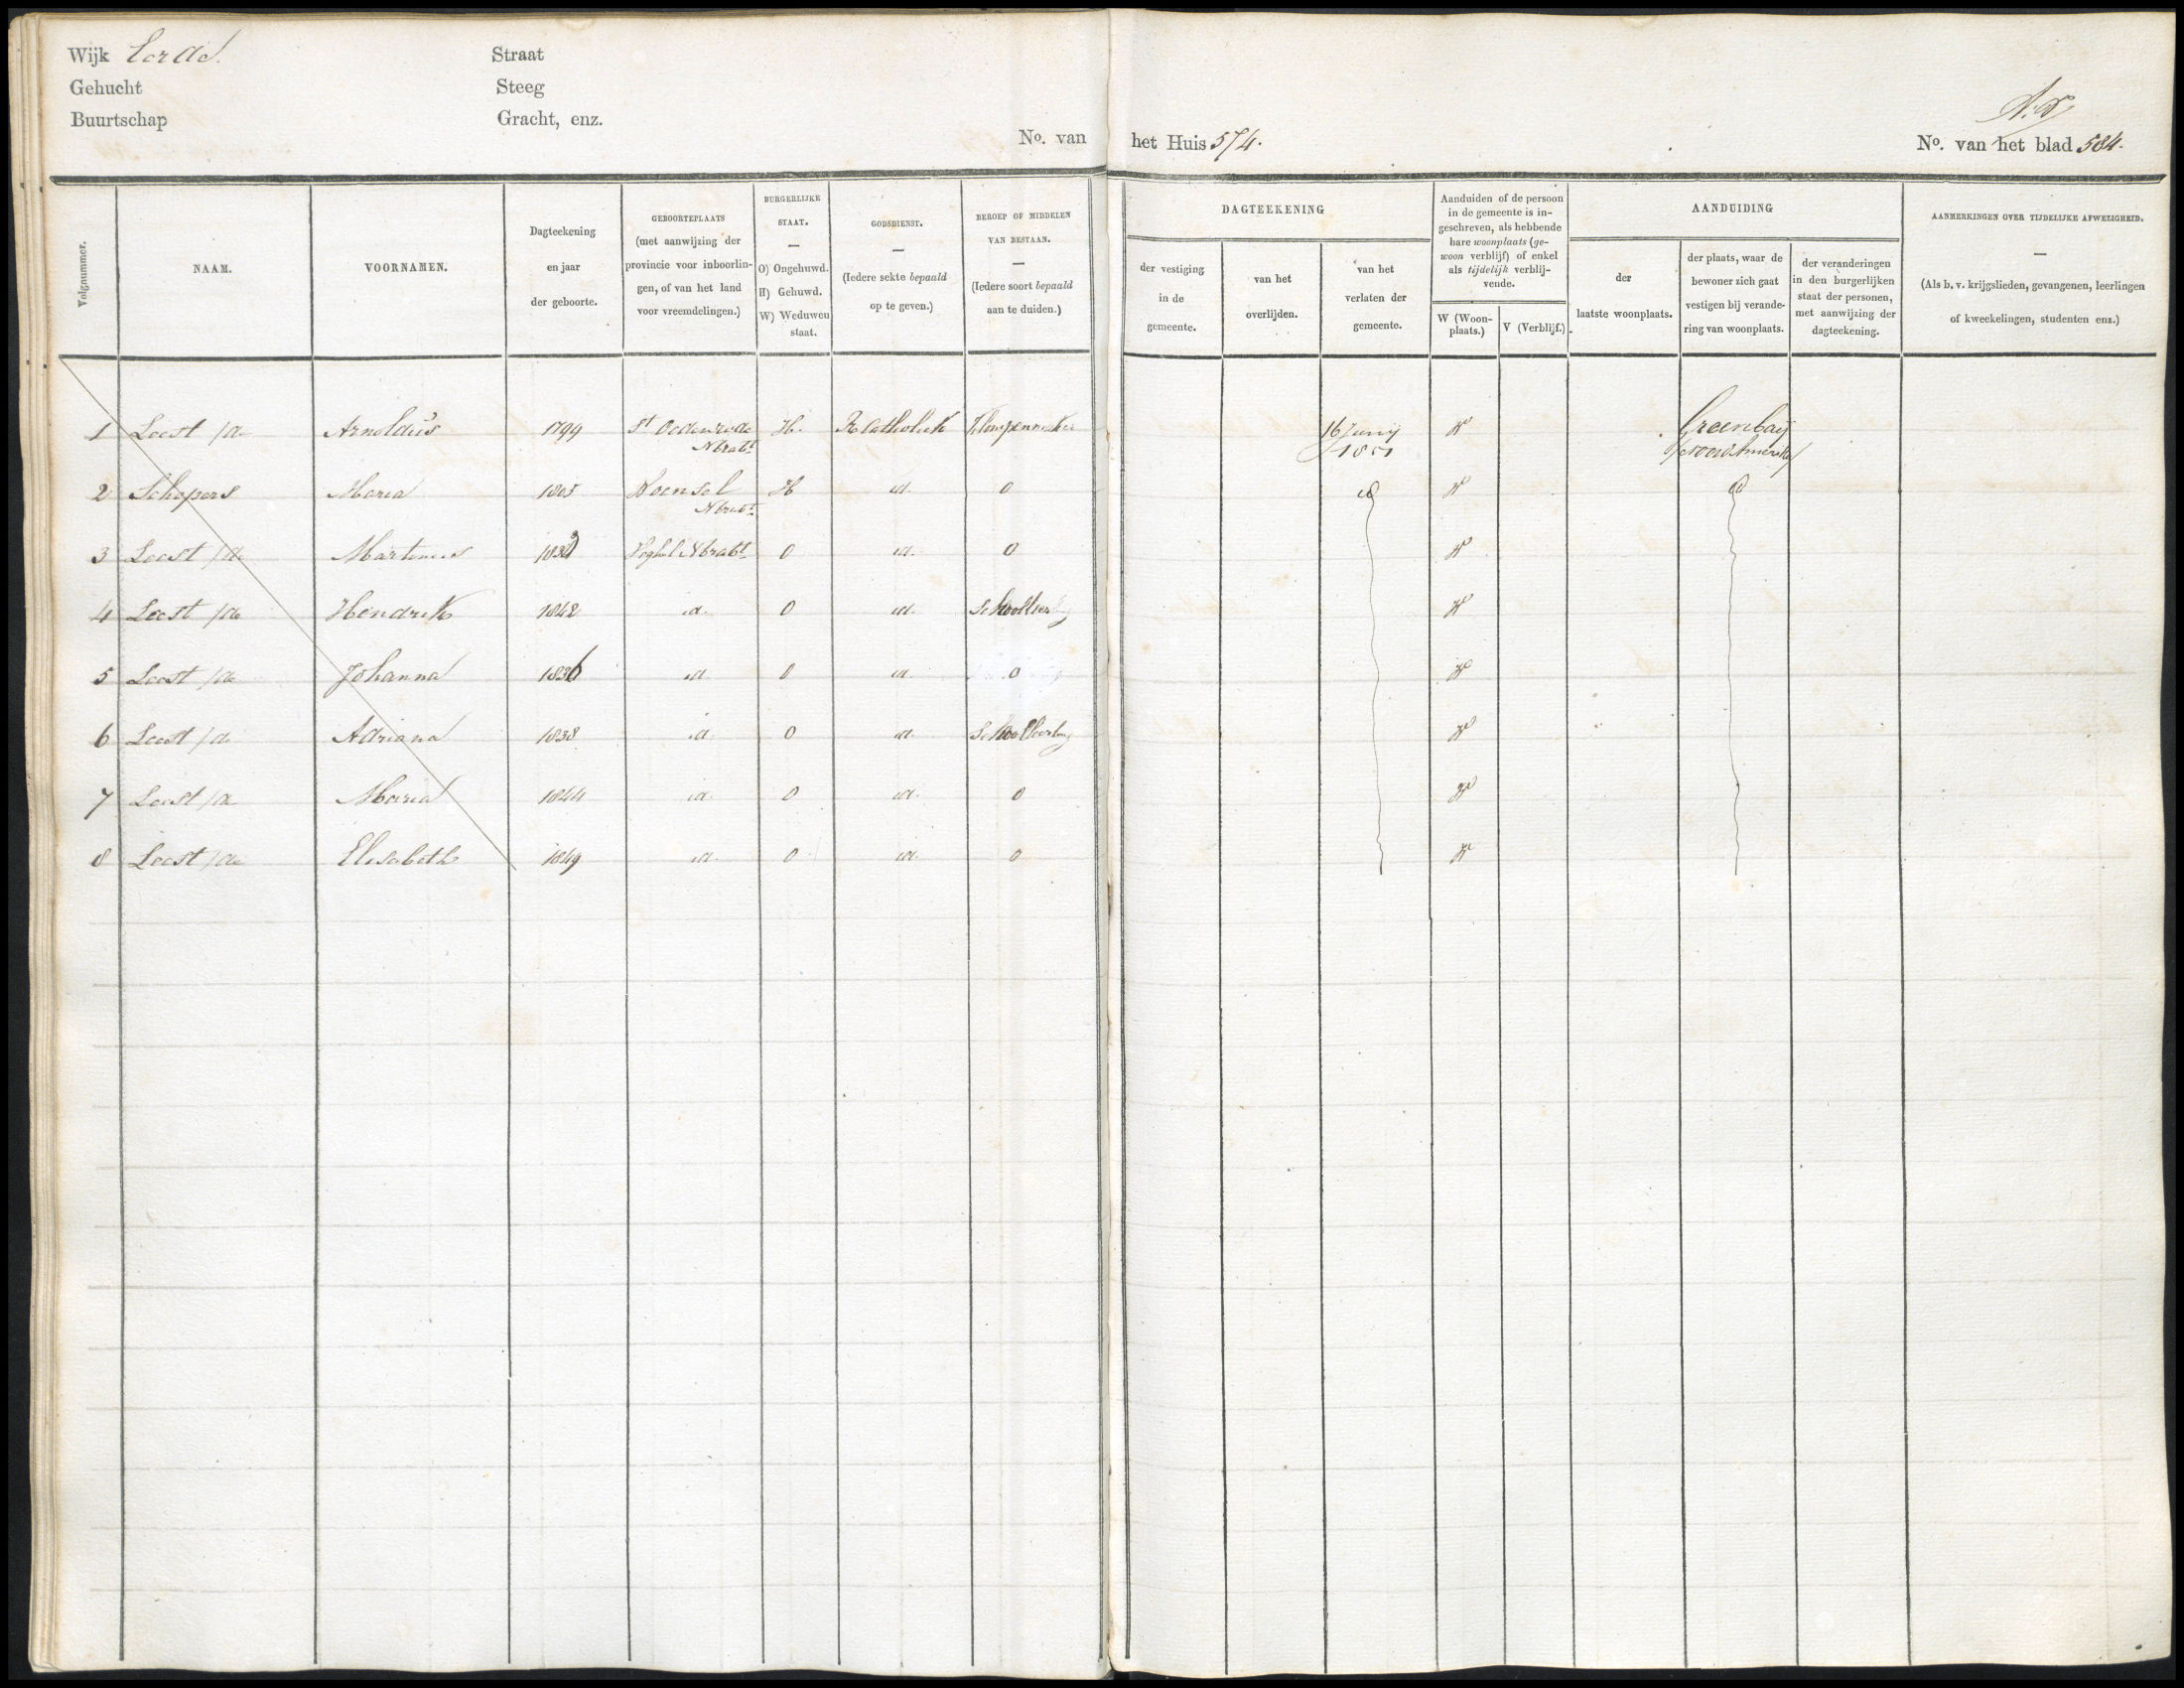 Wijk Eerde.
Gehucht
Buurtschap
Straat
Steeg
Gracht, enz.
No. van
het Huis 574.
No. van het blad 584.
Volgnummer.
NAAM.
VOORNAMEN.
Dagteekening
en jaar
der geboorte.
GEBOORTEPLAATS
(met aanwijzing der
provincie voor inboorlin-
gen, of van het land
voor vreemdelingen.)
BURGERLIJKE
STAAT.
—
O) Ongehuwd.
H) Gehuwd.
W) Weduwen
staat.
GODSDIENST.
—
(Iedere sekte bepaald
op te geven.)
BEROEP OF MIDDELEN
VAN BESTAAN.
—
(Iedere soort bepaald
aan te duiden.)
DAGTEEKENING
der vestiging
in de
gemeente.
van het
overlijden.
van het
verlaten der
gemeente.
Aanduiden of de persoon
in de gemeente is in-
geschreven, als hebbende
hare woonplaats (ge-
woon verblijf) of enkel
als tijdelijk verblij-
vende.
W (Woon-
plaats.)
V (Verblijf.)
AANDUIDING
der
laatste woonplaats.
der plaats, waar de
bewoner zich gaat
vestigen bij verande-
ring van woonplaats.
der veranderingen
in den burgerlijken
staat der personen,
met aanwijzing der
dagteekening.
AANMERKINGEN OVER TIJDELIJKE AFWEZIGHEID.
—
(Als b. v. krijgslieden, gevangenen, leerlingen
of kweekelingen, studenten enz.)
1 Leest /de Arnoldus 1799 St Oedenrode H. R Catholiek Klompenmaker 16 Junij W Greenbaij
Nbrabt 1851 /Noord Amerika/
2 Schepers Maria 1805 Woensel H id. 0 id W id
Nbrabt
3 Leest /de Martinus Veghel Nbrabt 0 id. 0 W
4 Leest /de Hendrik 1842 id. 0 id. Schoolleerling W
5 Leest /de Johanna 1836 id 0 id. 0 W
6 Leest /de Adriana 1838 id. 0 id. Schoolleerling W
7 Leest /de Maria 1844 id. 0 id. 0 W
8 Leest /de Elisabeth 1849 id. 0 id. 0 W